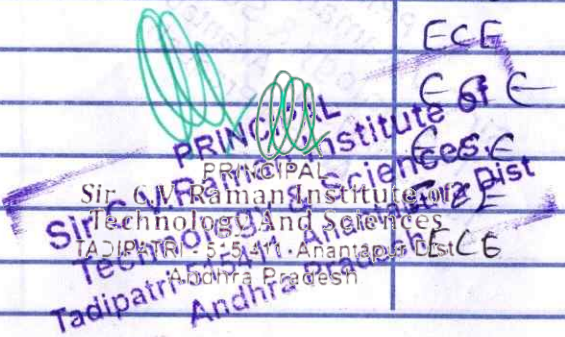 ECE
PRINCIPAL
Sir C.V. Raman Institute of
Technology & Sciences
Tadipatri-515411. Anantapur Dist
Andhra Pradesh
PRINCIPAL
Sir C.V. Raman Institute of
Technology And Sciences
TADIPATRI - 515 411. Anantapur Dist
Andhra Pradesh
ECE